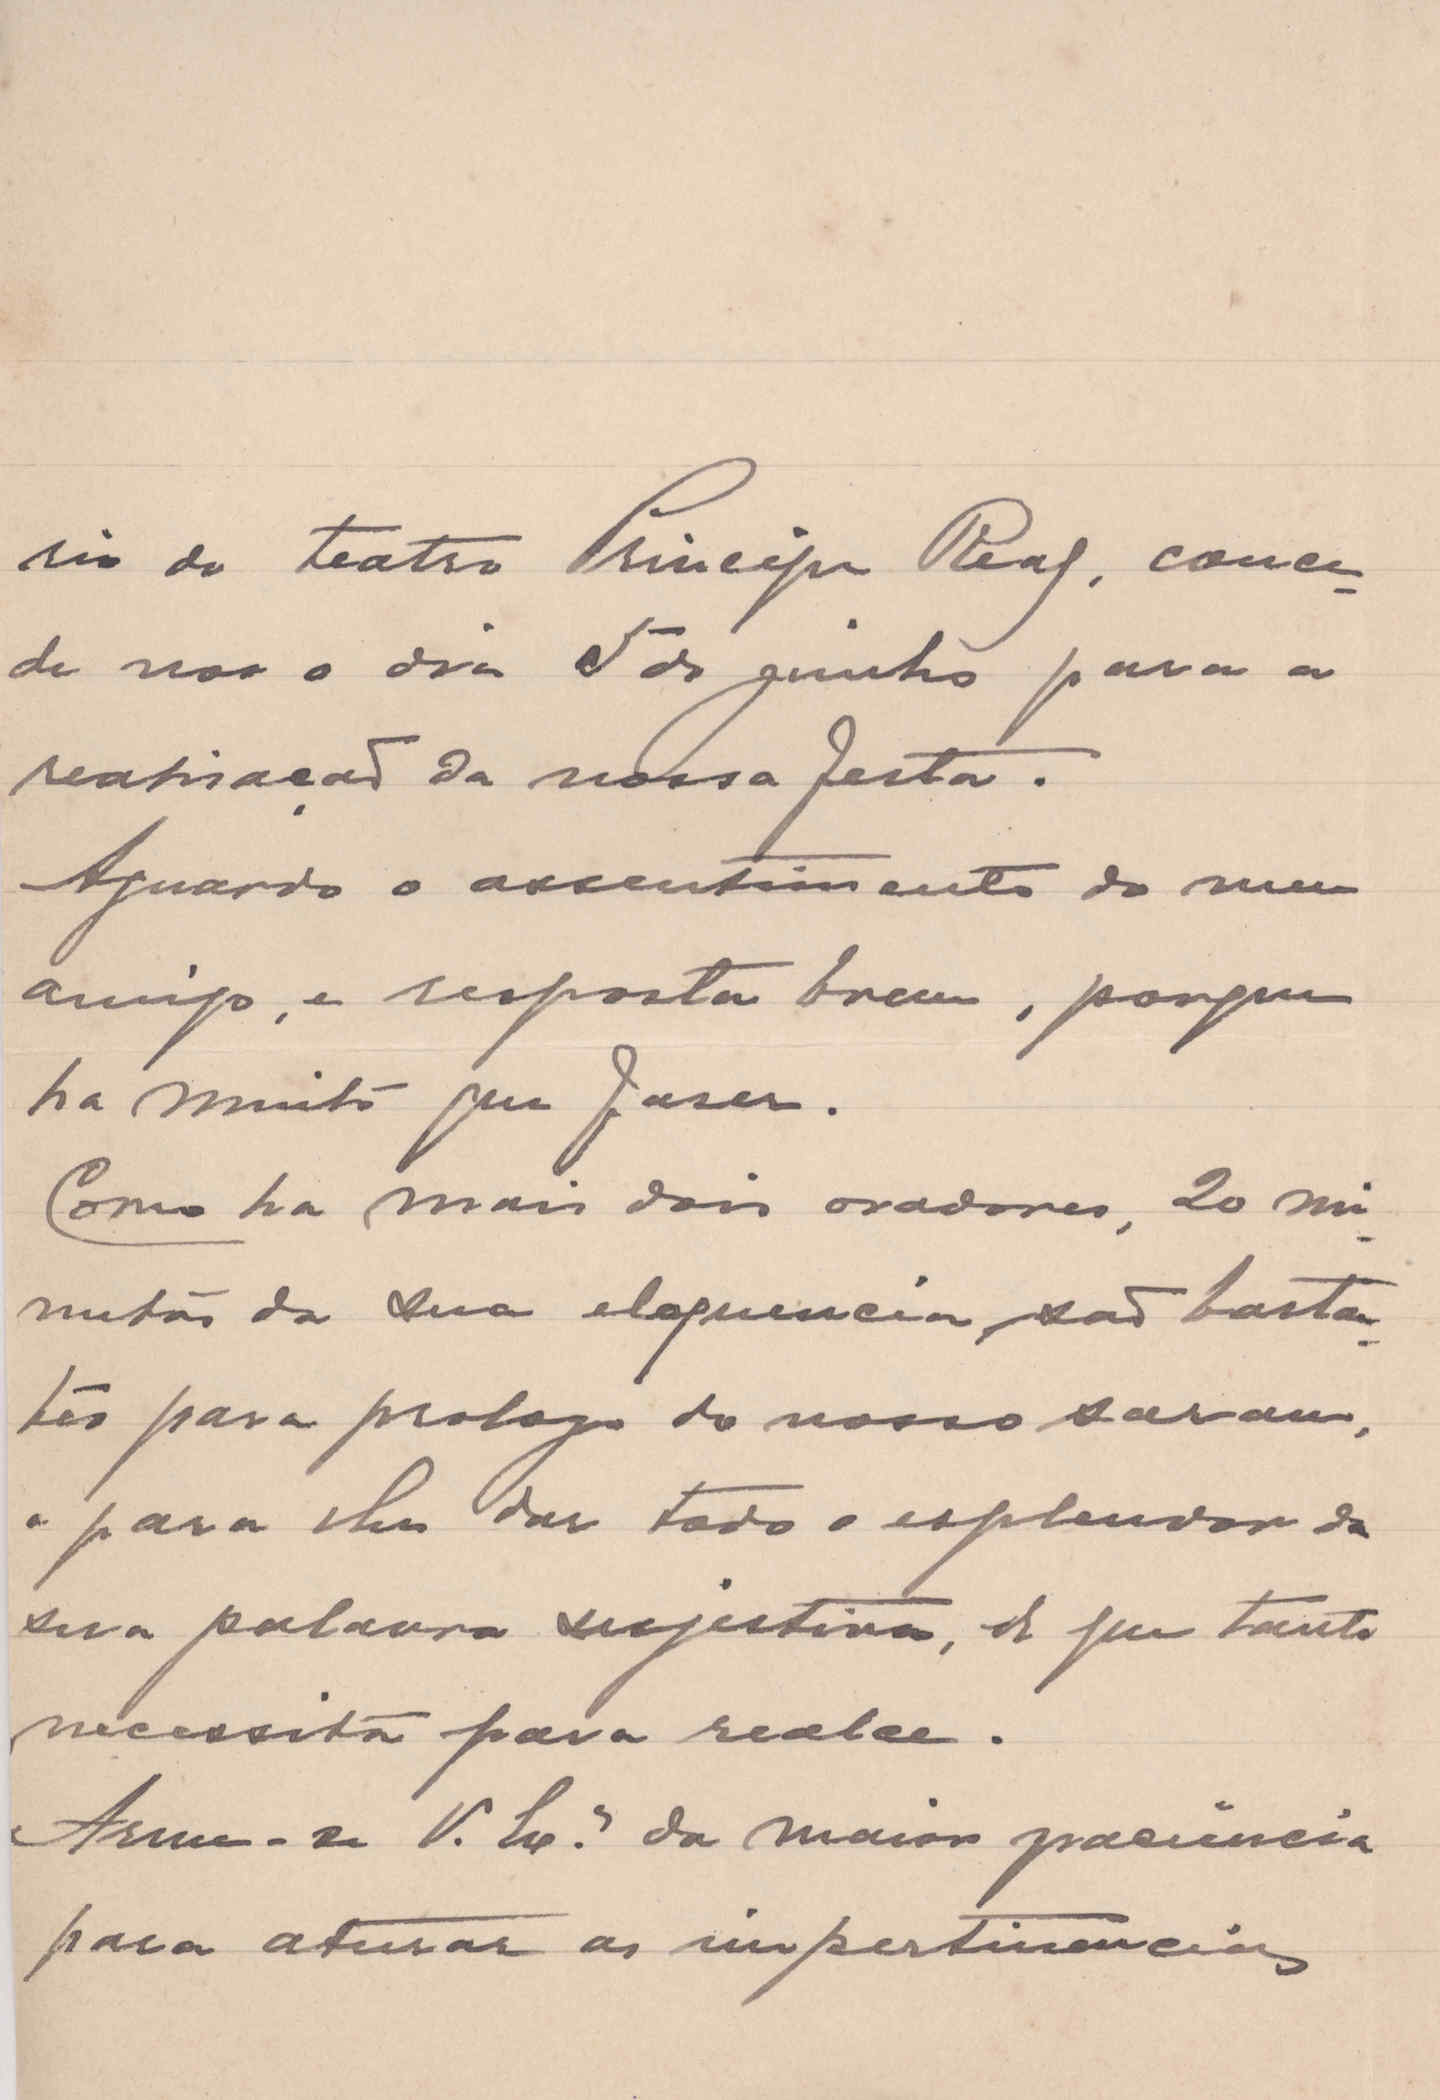 rio do teatro Principe Real, conce-
de nos o dia 5 de junho para a
realisação da nossa festa.
Aguardo o assentimento do meu
amigo, e resposta breve, porque
ha muito que faser.
Como ha mais dois oradores, 20 mi-
nutos da sua eloquencia, são bastan-
tes para prologo do nosso sarau,
e para lhe dar todo o esplendor da
sua palavra sujestiva, de que tanto
necessita para realce.
Arme-se V. Ex.ª da maior paciência
para aturar as impertinencias